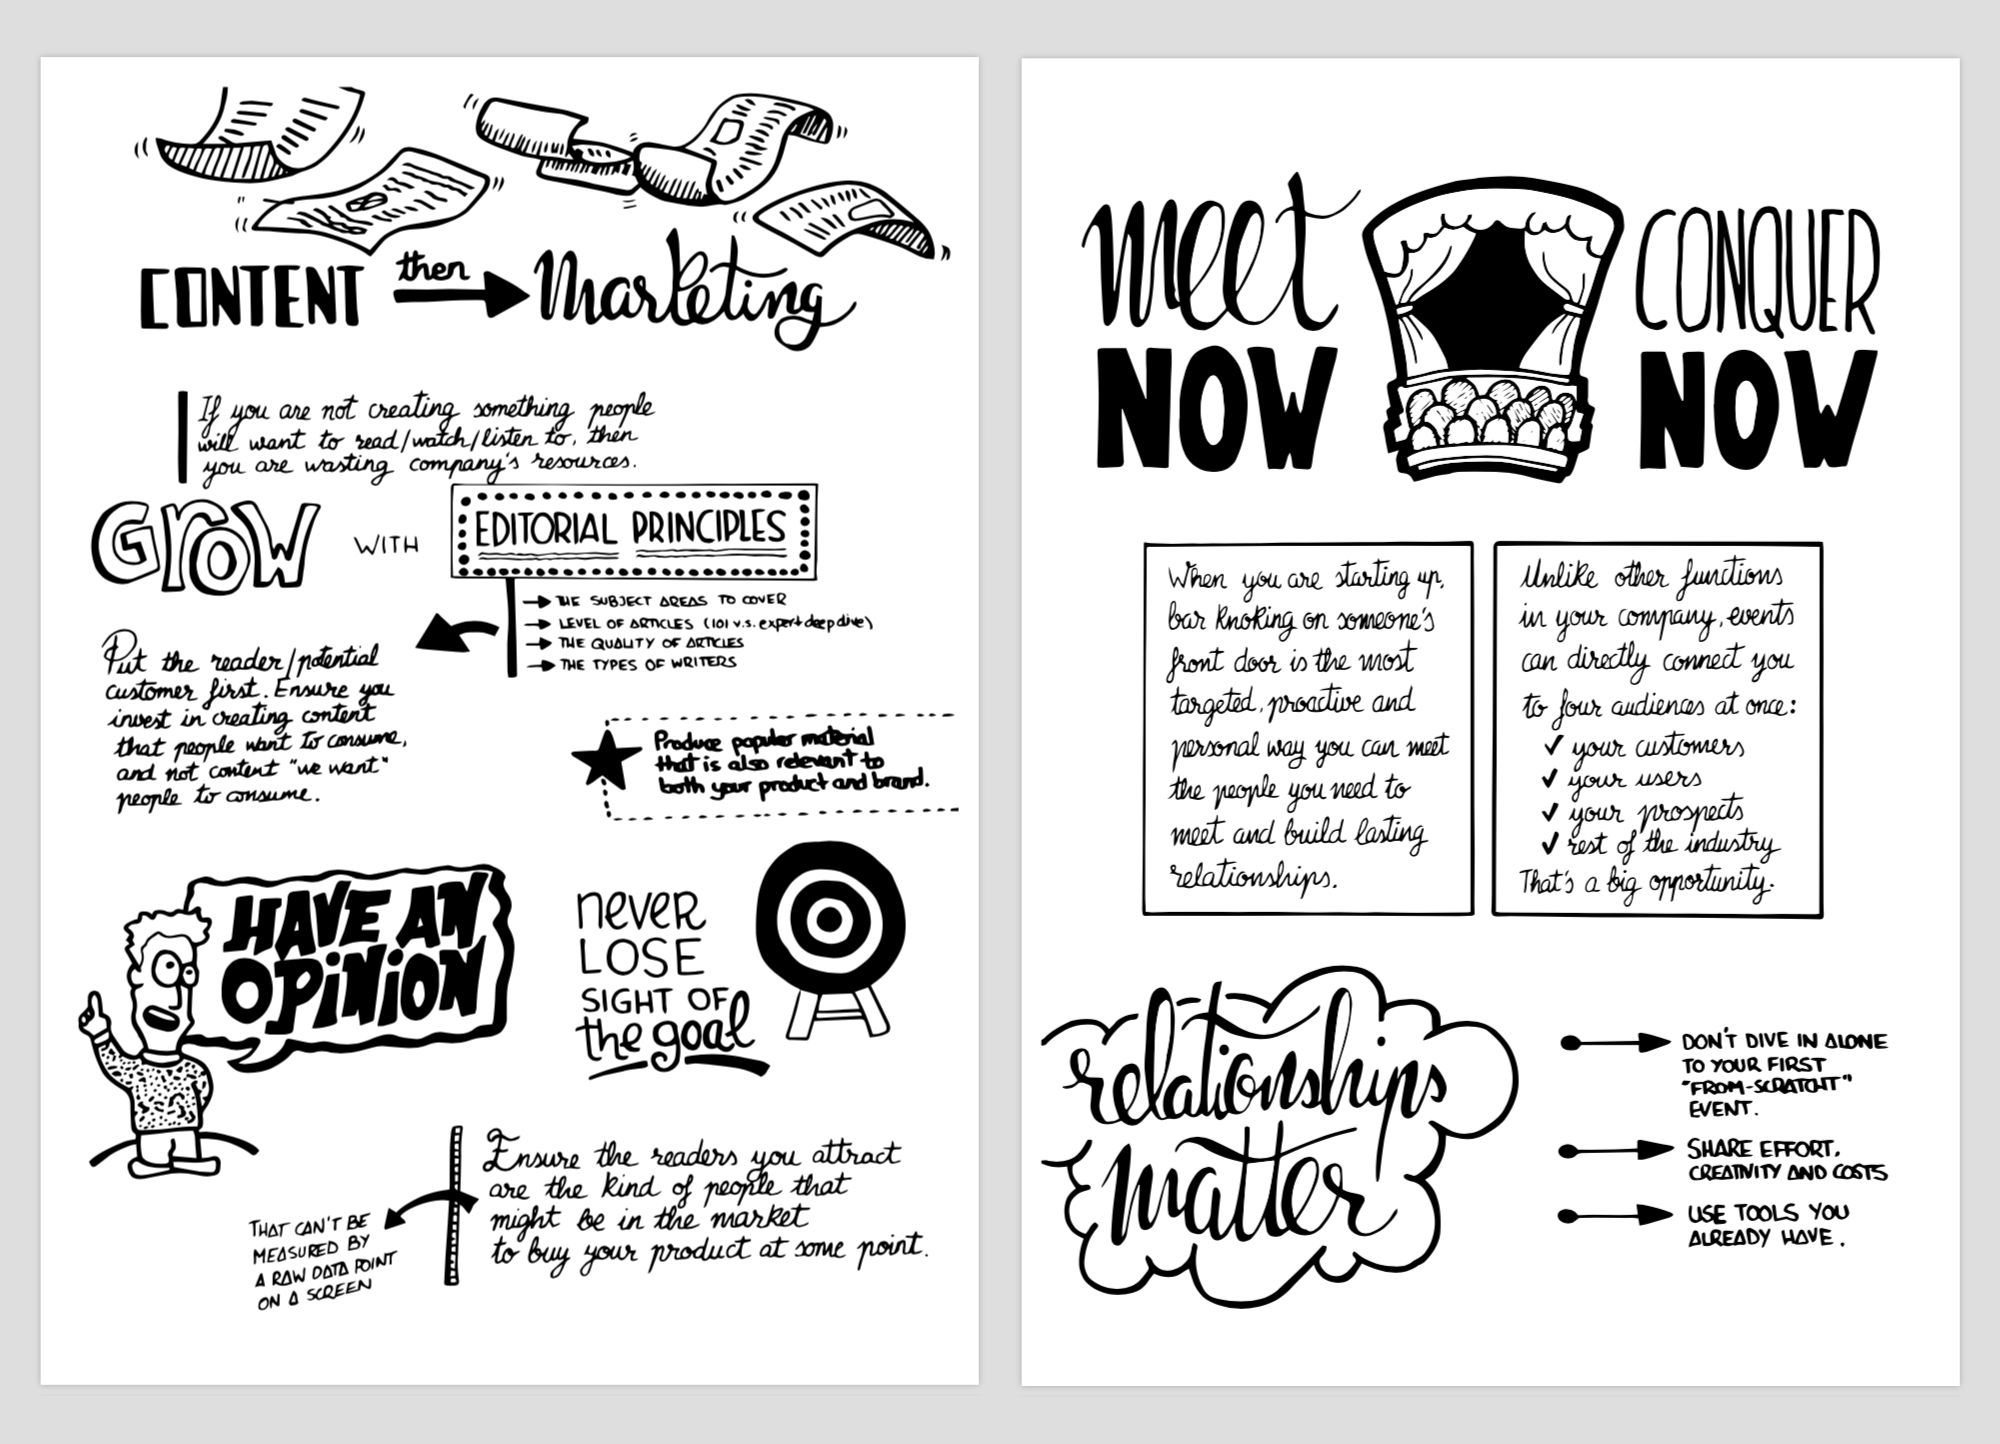 CONTENT then Marketing
If you are not creating something people
will want to read/watch/listen to, then
you are wasting company's resources.
GroW WITH EDITORIAL PRINCIPLES
THE SUBJECT AREAS TO COVER
LEVEL OF ARTICLES (101 v.s. expert deep dive)
THE QUALITY OF ARTICLES
THE TYPES OF WRITERS
Put the reader/potential
customer first. Ensure you
invest in creating content
that people want to consume,
and not content "we want"
people to consume.
Produce popular material
that is also relevant to
both your product and brand.
HAVE AN
OPiNiON
never
LOSE
SIGHT OF
the goal
Ensure the readers you attract
are the kind of people that
might be in the market
to buy your product at some point.
THAT CAN'T BE
MEASURED BY
A RAW DATA POINT
ON A SCREEN
meet
NOW
CONQUER
NOW
When you are starting up,
bar knoking on someone's
front door is the most
targeted, proactive and
personal way you can meet
the people you need to
meet and build lasting
relationships.
Unlike other functions
in your company, events
can directly connect you
to four audiences at once:
✓ your customers
✓ your users
✓ your prospects
✓ rest of the industry
That's a big opportunity.
relationships
matter
DON'T DIVE IN ALONE
TO YOUR FIRST
"FROM-SCRATCHT"
EVENT.
SHARE EFFORT,
CREATIVITY AND COSTS
USE TOOLS YOU
ALREADY HAVE.